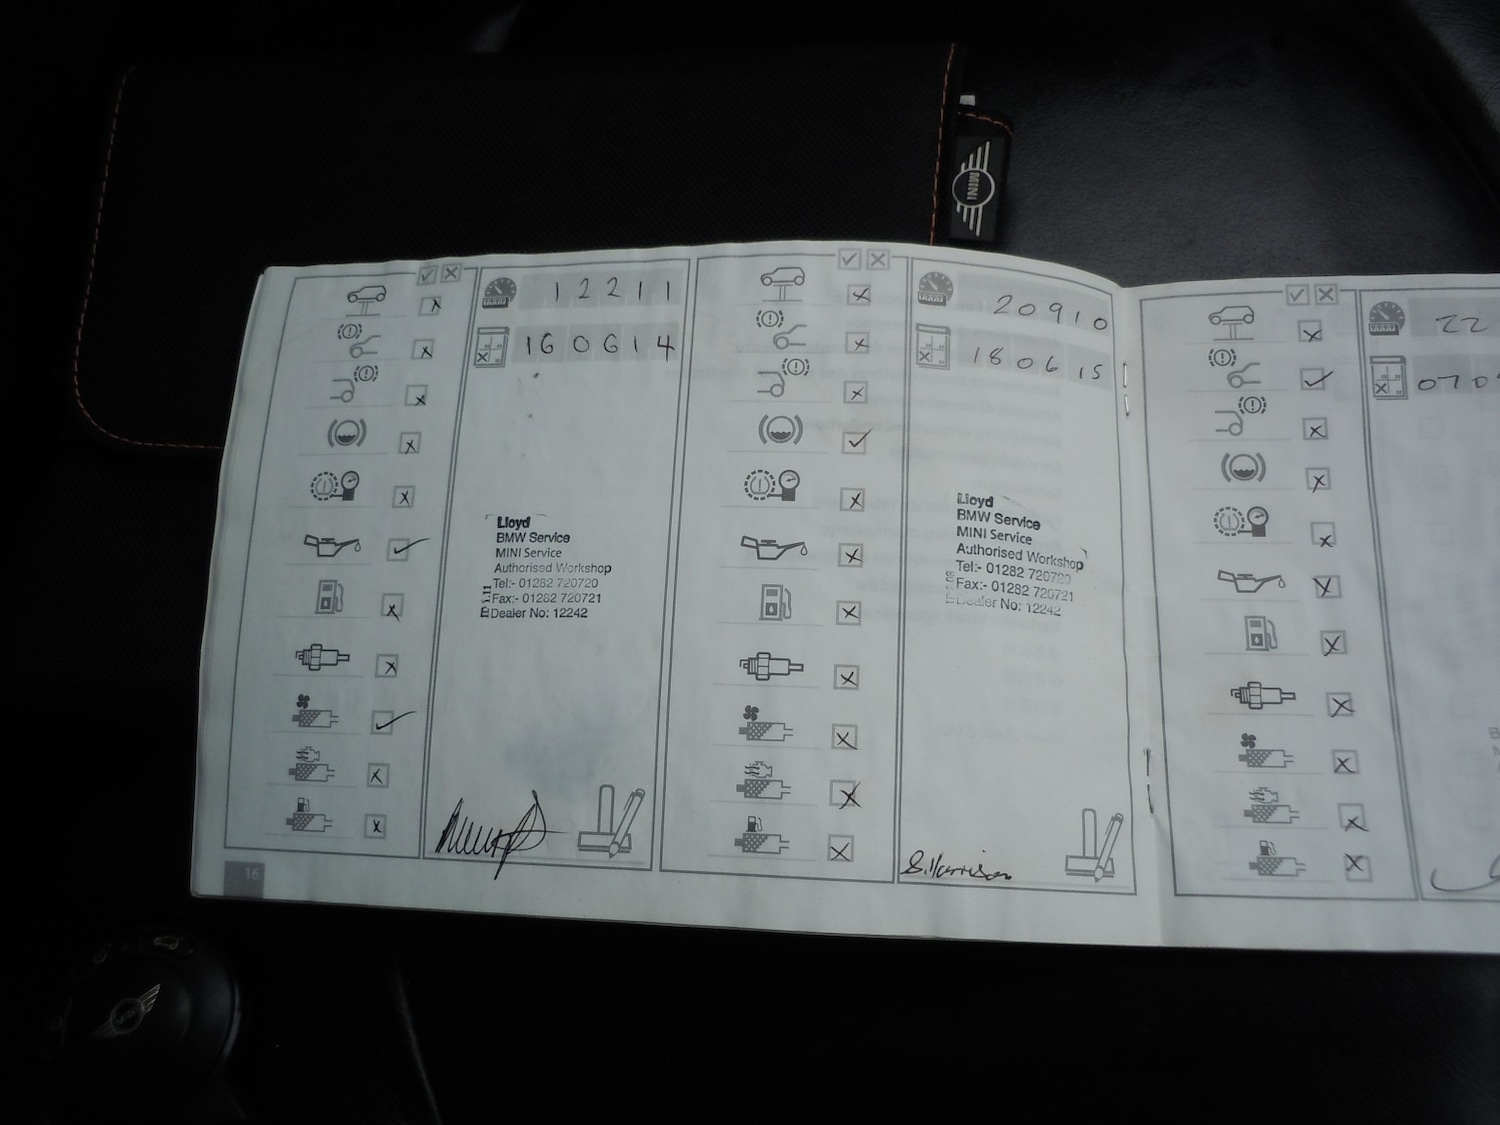 MINI
12211
160614
Lloyd
BMW Service
MINI Service
Authorised Workshop
Tel:- 01282 720720
Fax:- 01282 720721
Dealer No: 12242
16
20910
180615
Lloyd
BMW Service
MINI Service
Authorised Workshop
Tel:- 01282 720720
Fax:- 01282 720721
Dealer No: 12242
S. Harrison
22
070
MINI